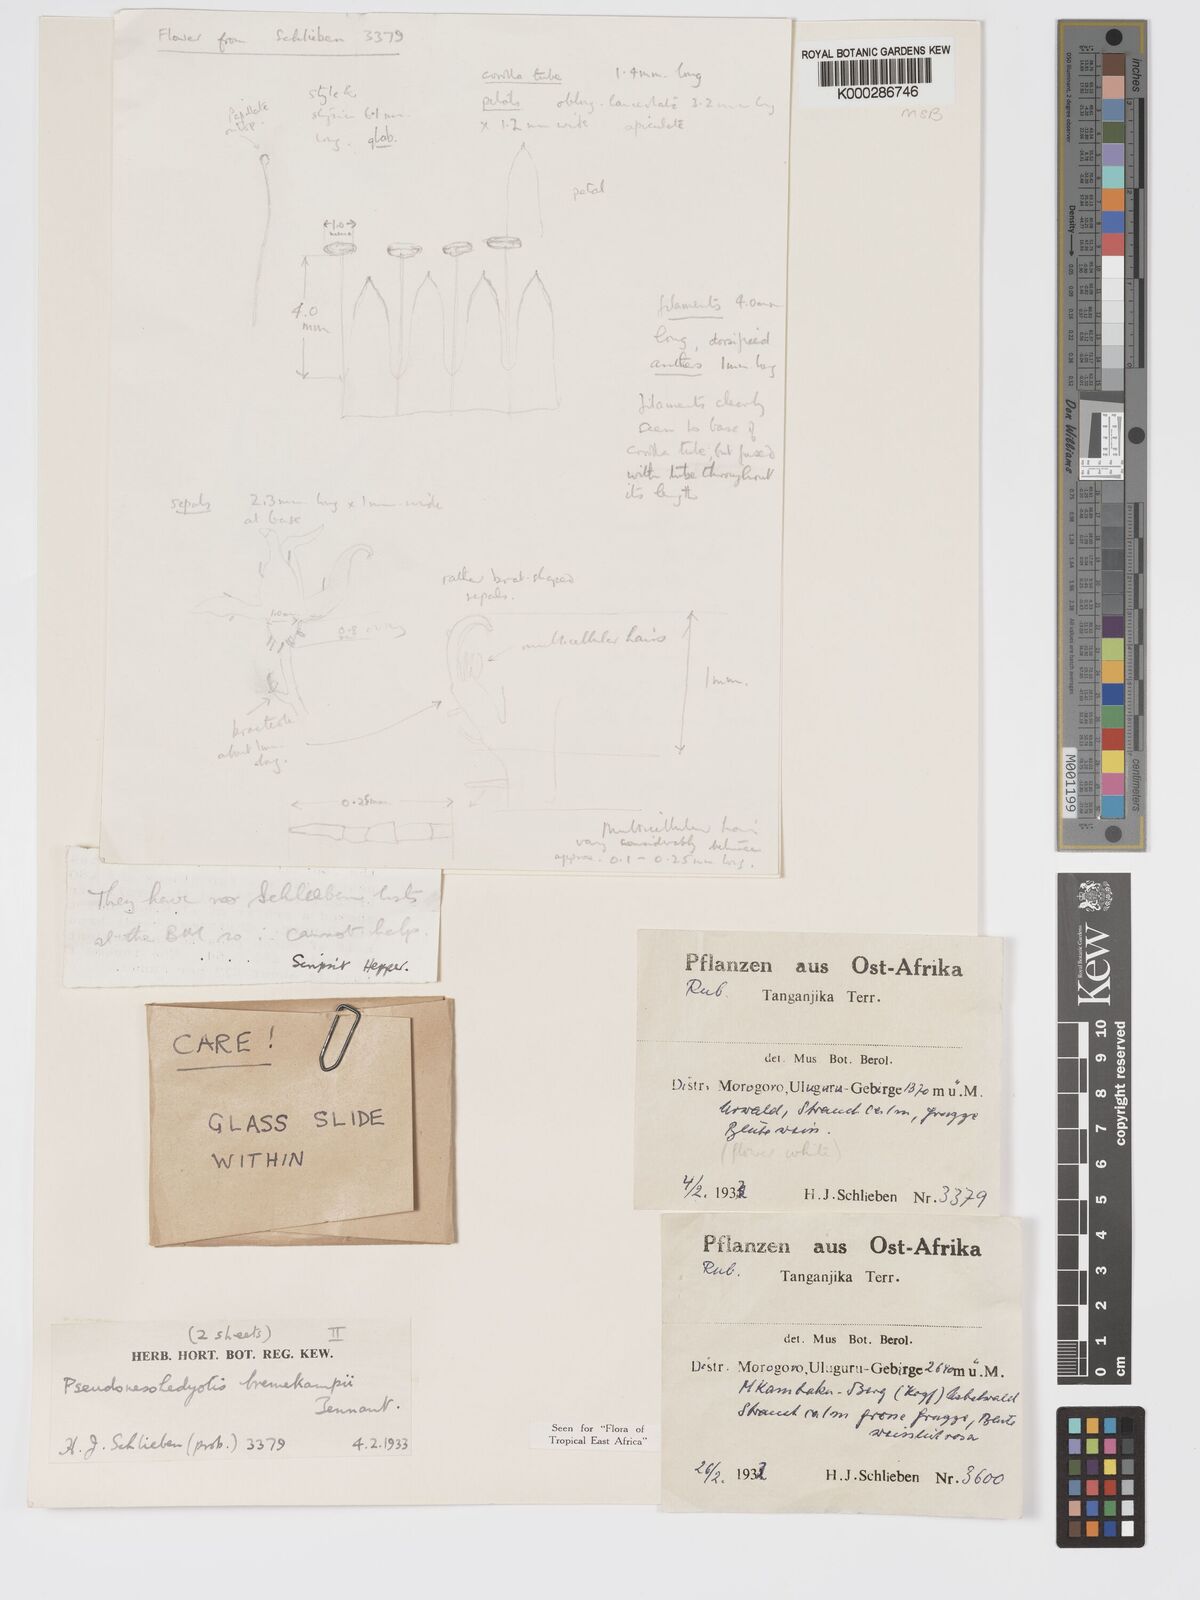 Flower from Schlieben 3379
ROYAL BOTANIC GARDENS KEW
K000286746
MSB
corolla tube 1.4mm. long
petals oblong-lanceolate 3.2 mm long
x 1.2 mm wide apiculate
style &
stigma 6.1 mm
long. glab.
Papillate
petal
1.0
4.0
mm
filaments 4.0mm
long, dorsifixed
anthers 1mm long
filaments clearly
seen to base of
corolla tube, but fused
with tube throughout
its length
sepals 2.3mm long x 1mm wide
at base
rather boat-shaped
sepals.
multicellular hairs
1mm.
bracteole
about 1mm
long.
0.25mm
Multicellular hairs
vary considerably between
approx. 0.1 - 0.25mm long.
They have no Schlieben lists
at the BM so ∴ cannot help.
Scripsit Hepper.
CARE!
GLASS SLIDE
WITHIN
Pflanzen aus Ost-Afrika
Rub. Tanganjika Terr.
det. Mus Bot. Berol.
Distr. Morogoro, Uluguru-Gebirge 1370 m ü. M.
Urwald, Strauch ca 1m,
Blüte weiss.
(flower white)
4/2. 1933 H. J. Schlieben Nr. 3379
Pflanzen aus Ost-Afrika
Rub. Tanganjika Terr.
det. Mus Bot. Berol.
Distr. Morogoro, Uluguru-Gebirge 2640 m ü. M.
Strauch ca 1m grosse Blüte
rosa
26/2. 1933 H. J. Schlieben Nr. 3600
(2 sheets) II
HERB. HORT. BOT. REG. KEW.
Pseudonesohedyotis bremekampii
Tennant.
H. J. Schlieben (prob.) 3379 4.2.1933
Seen for "Flora of
Tropical East Africa"
inches
Density
Don Williams
M001199
centimeters
Royal Botanic Gardens
Kew
0 1 2 3 4 5 6 7 8 9 10
cm
copyright reserved